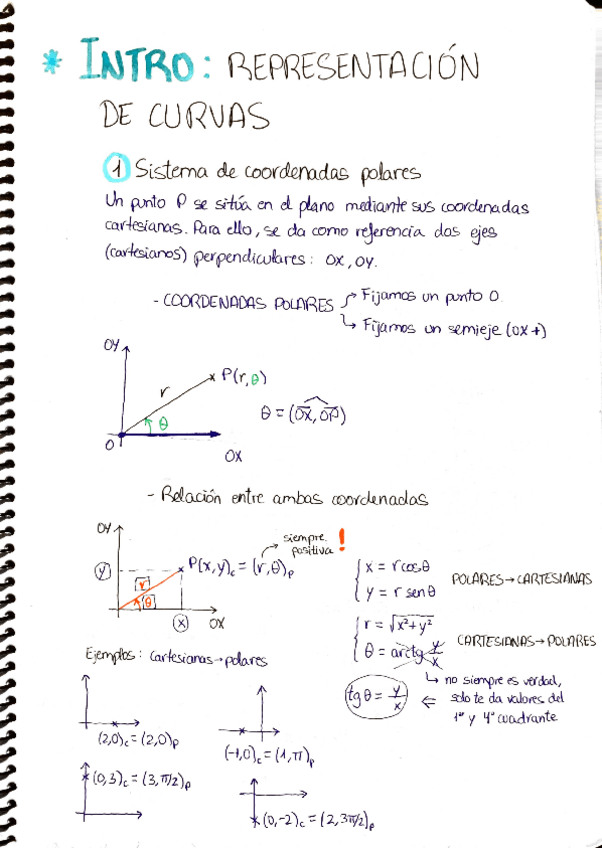 * INTRO: REPRESENTACIÓN
DE CURVAS
1 Sistema de coordenadas polares
Un punto P se sitúa en el plano mediante sus coordenadas
cartesianas. Para ello, se da como referencia dos ejes
(cartesianos) perpendiculares: OX, OY.
- COORDENADAS POLARES
→ Fijamos un punto O.
↳ Fijamos un semieje (OX+)
OY
r
P(r,θ)
θ
θ = (OX, OP)
O
OX
- Relación entre ambas coordenadas
OY
siempre positiva !
y
P(x,y)c = (r,θ)p
r
θ
x
OX
x = r cosθ
y = r senθ
POLARES → CARTESIANAS
r = √x²+y²
θ = arctg y/x
CARTESIANAS → POLARES
↳ no siempre es verdad,
solo te da valores del
1er y 4º cuadrante
tgθ = y/x ⇐
Ejemplos: Cartesianas → polares
(2,0)c = (2,0)p
(-1,0)c = (1,π)p
(0,3)c = (3,π/2)p
(0,-2)c = (2,3π/2)p